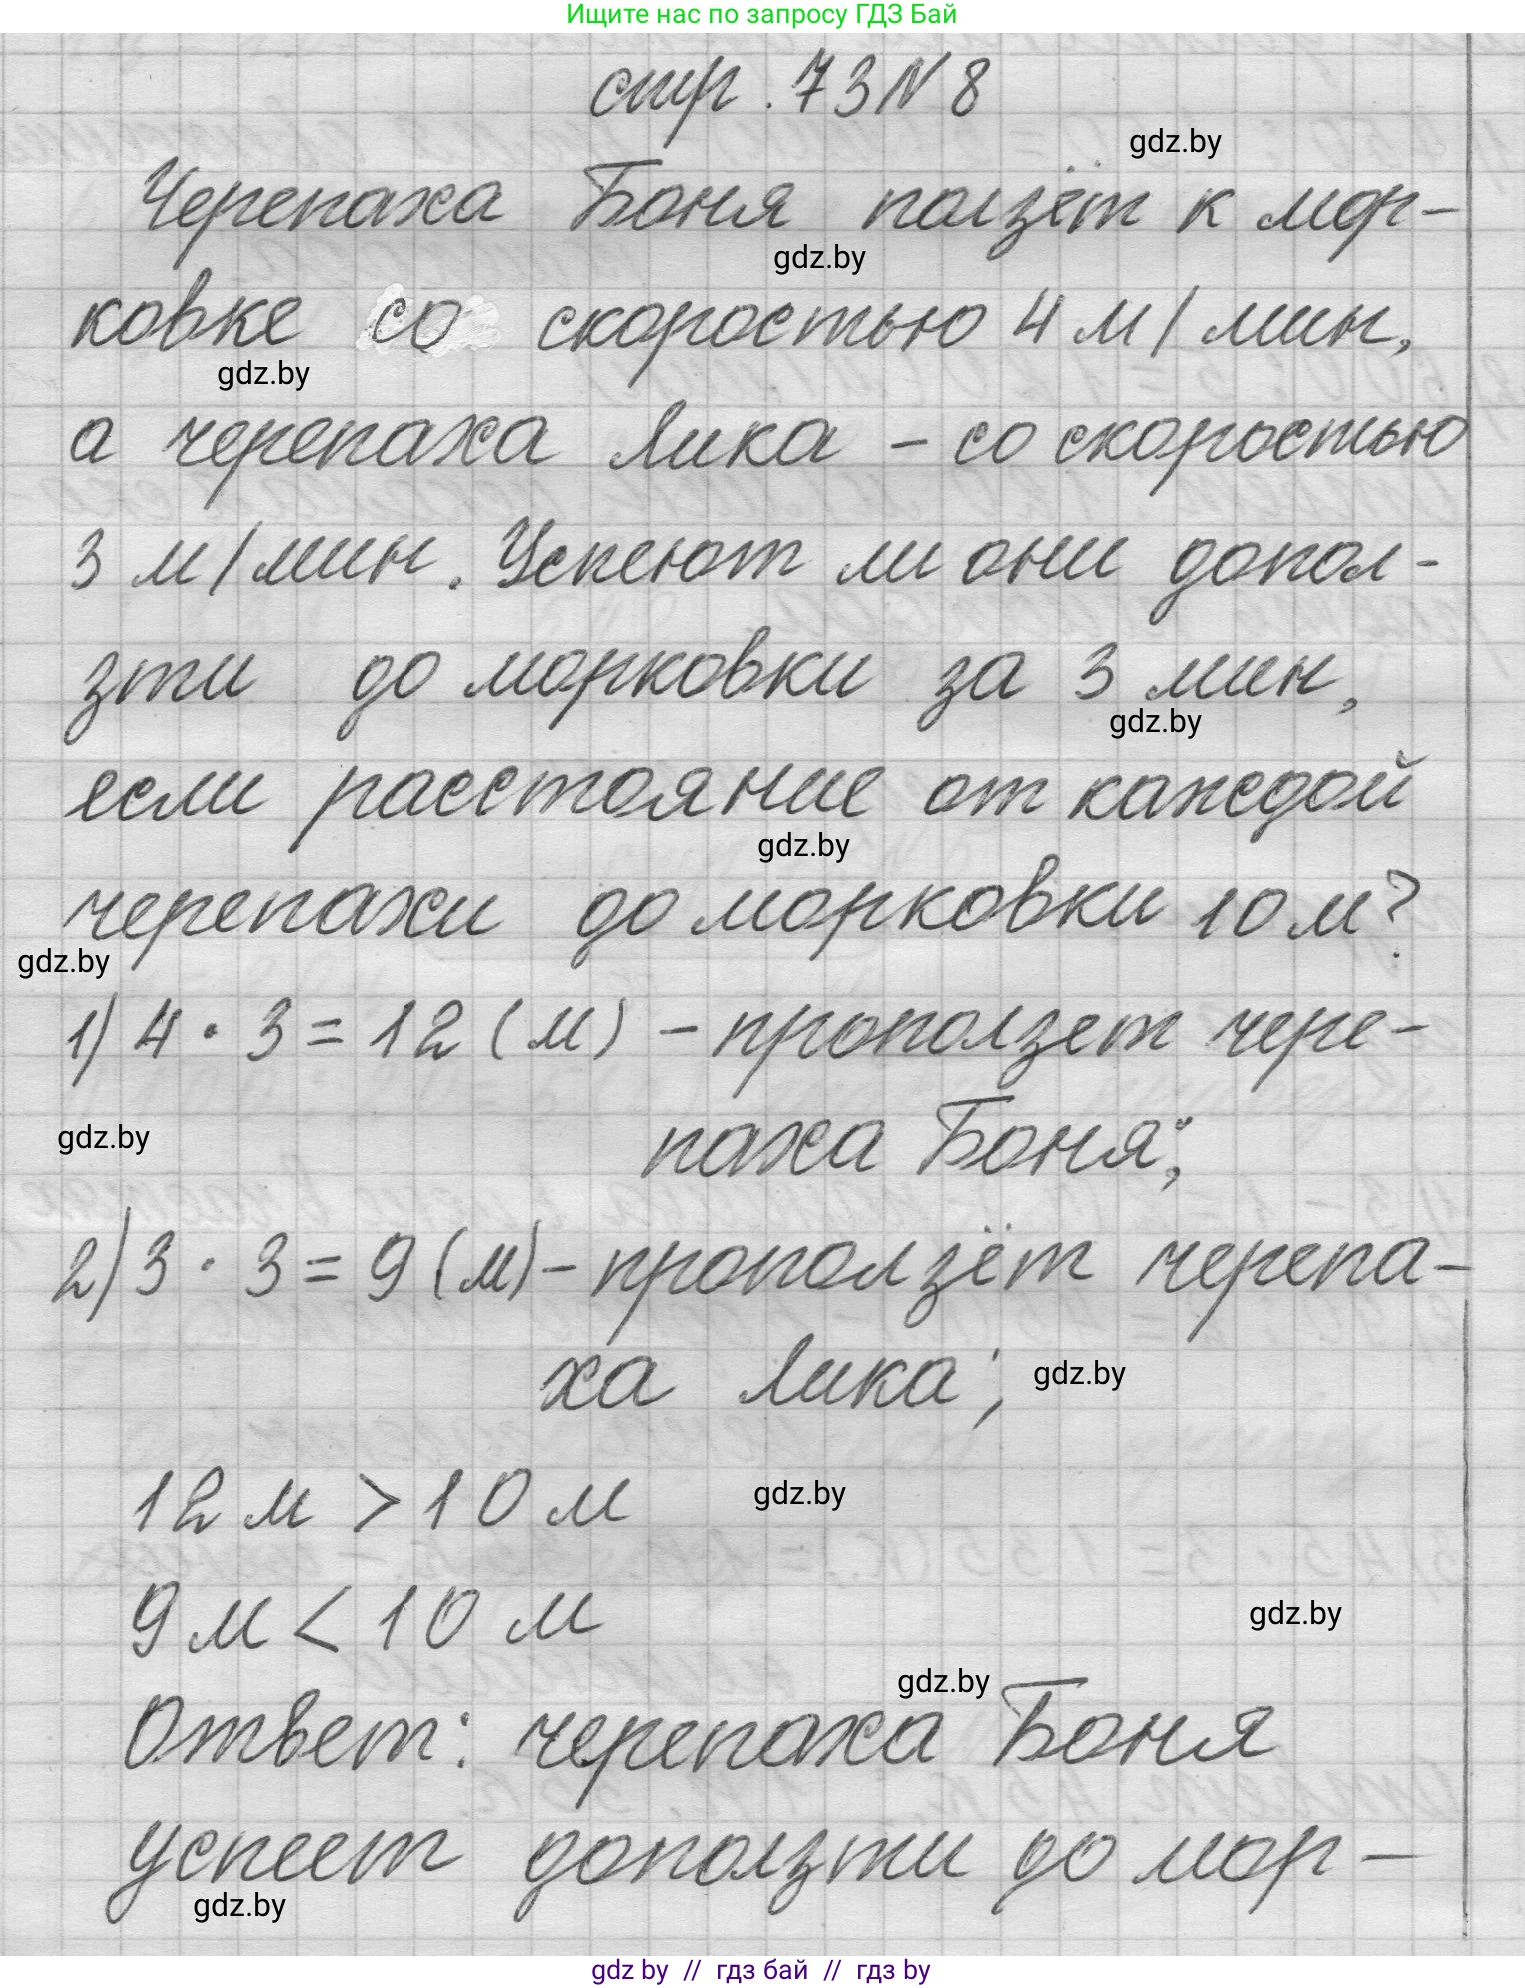 Ищите нас по запросу ГДЗ Бай
стр. 73 N 8
gdz.by
Черепаха Боня ползёт к мор-
gdz.by
ковке со скоростью 4 м/мин,
gdz.by
а черепаха Лика – со скоростью
3 м/мин. Успеют ли они допол-
зти до морковки за 3 мин,
gdz.by
если расстояние от каждой
gdz.by
черепахи до морковки 10 м?
gdz.by
1) 4 · 3 = 12 (м) – проползет чере-
gdz.by
паха Боня;
2) 3 · 3 = 9 (м) – проползёт черепа-
ха Лика;
gdz.by
12 м > 10 м
gdz.by
9 м < 10 м
gdz.by
gdz.by
Ответ: черепаха Боня
успеет доползти до мор-
gdz.by
gdz by // гдз бай // гдз by